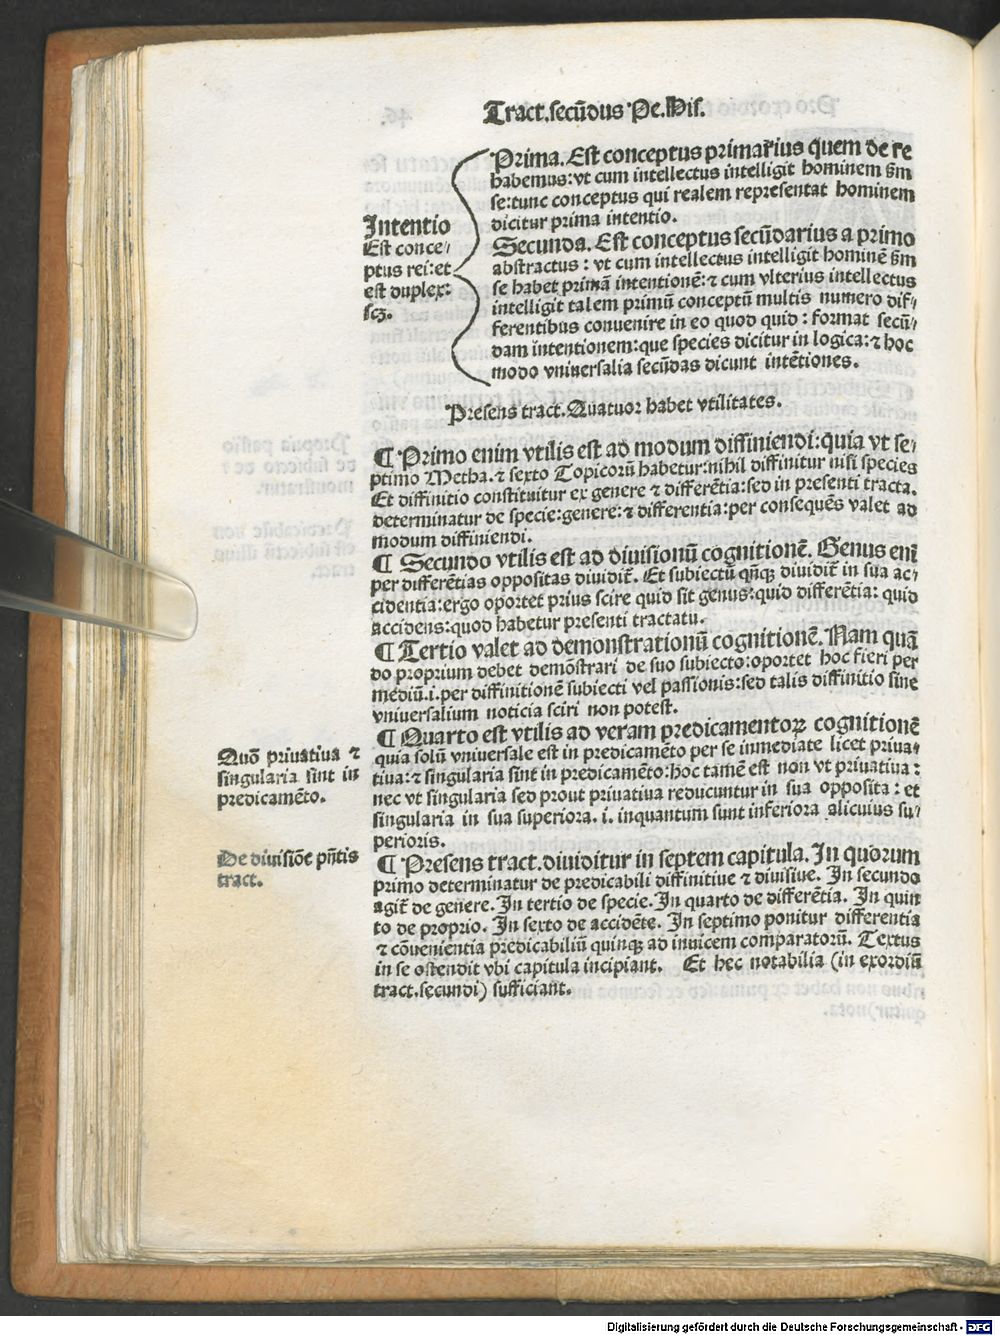 Tract.secūdus Pe.His.
Intentio
Est conce/
ptus rei:et
est duplex:
scꝫ.
Prima. Est conceptus primarius quem de re
habemus:vt cum intellectus intelligit hominem s̄m
se:tunc conceptus qui realem representat hominem
dicitur prima intentio.
Secunda. Est conceptus secūdarius a primo
abstractus : vt cum intellectus intelligit hominē s̄m
se habet primā intentionē:⁊ cum vlterius intellectus
intelligit talem primū conceptū multis numero dif/
ferentibus conuenire in eo quod quid : format secū/
dam intentionem:que species dicitur in logica:⁊ hoc
modo vniuersalia secūdas dicunt intētiones.
Presens tract.Quatuor habet vtilitates.
¶ Primo enim vtilis est ad modum diffiniendi:quia vt se/
ptimo Metha.⁊ sexto Topicorū habetur:nihil diffinitur nisi species
Et diffinitio constituitur ex genere ⁊ differētia:sed in presenti tracta.
determinatur de specie:genere:⁊ differentia:per consequēs valet ad
modum diffiniendi.
¶ Secundo vtilis est ad diuisionū cognitionē. Genus eni
per differētias oppositas diuidit̄. Et subiectū qn̄qꝫ diuidit̄ in sua ac/
cidentia:ergo oportet prius scire quid sit genus:quid differētia: quid
accidens:quod habetur presenti tractatu.
¶ Tertio valet ad demonstrationū cognitionē. Nam quā
do proprium debet demōstrari de suo subiecto:oportet hoc fieri per
mediū.i.per diffinitionē subiecti vel passionis:sed talis diffinitio sine
vniuersalium noticia sciri non potest.
¶ Quarto est vtilis ad veram predicamentoꝝ cognitionē
quia solū vniuersale est in predicamēto per se inmediate licet priua/
tiua:⁊ singularia sint in predicamēto:hoc tamē est non vt priuatiua :
nec vt singularia sed prout priuatiua reducuntur in sua opposita : et
singularia in sua superiora. i. inquantum sunt inferiora alicuius su/
perioris.
Quō priuatiua ⁊
singularia sint in
predicamēto.
¶ Presens tract.diuiditur in septem capitula. In quorum
primo determinatur de predicabili diffinitiue ⁊ diuisiue. In secundo
agit̄ de genere. In tertio de specie. In quarto de differētia. In quin
to de proprio. In sexto de accidēte. In septimo ponitur differentia
⁊ cōuenientia predicabiliū quinqꝫ ad inuicem comparatorū. Textus
in se ostendit vbi capitula incipiant. Et hec notabilia (in exordiū
tract.secundi) sufficiant.
De diuisiōe pn̄tis
tract.
Digitalisierung gefördert durch die Deutsche Forschungsgemeinschaft - DFG